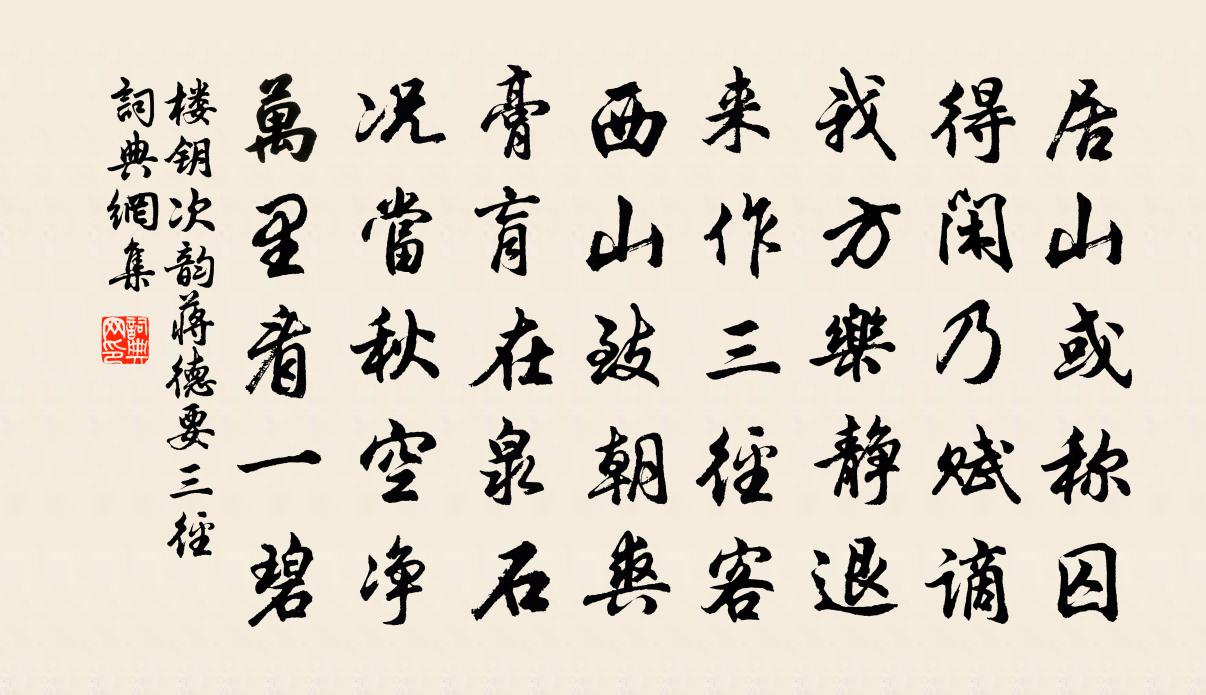 居山或称囚
得闲乃赋谪
我方樂静退
来作三徑客
西山致朝爽
膏肓在泉石
况當秋空净
萬里看一碧
楼钥次韵蒋德要三徑
詞典網集
詞典网印